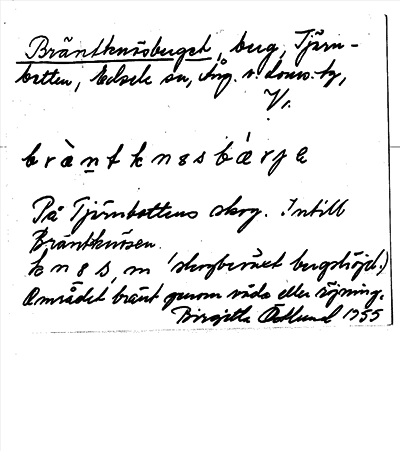 Bräntknösberget, berg, Tjärn-
botten, Edsele sn, Ång. v. doms. tg,
V.
brànt knøsbǽrjə
På Tjärnbottens skog. Intill
Bräntknösen.
knøs, m 'skogbeväxt bergshöjd.'
Området bränt genom våda eller röjning.
Birgitta Östlund 1955